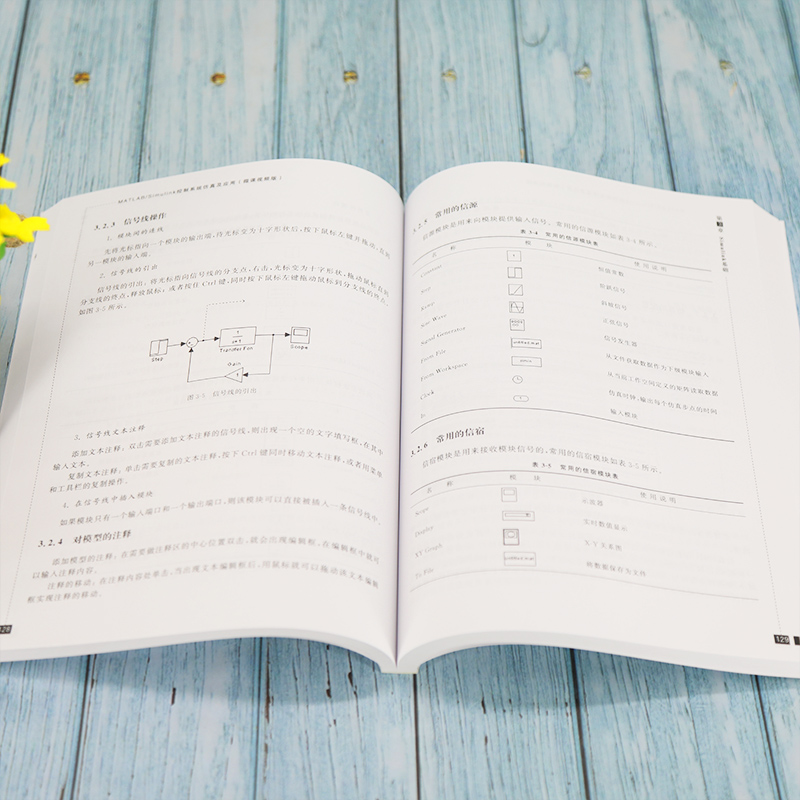 MATLAB/Simulink控制系统仿真及应用（微课视频版）
3.2.3 信号线操作
1. 模块间的连线
先将光标指向一个模块的输出端，待光标变为十字形状后，按下鼠标左键并拖动，直到
另一模块的输入端。
2. 信号线的引出
信号线的引出，将光标指向信号线的分支点，右击，光标变为十字形状，拖动鼠标直到
分支线的终点，释放鼠标，或者按住Ctrl键，同时按下鼠标左键拖动鼠标到分支线的终点，
如图3-5所示。
Step
1
s+5
Transfer Fcn
Scope
Gain
1
图3-5 信号线的引出
3. 信号线文本注释
添加文本注释：双击需要添加文本注释的信号线，则出现一个空的文字填写框，在其中
输入文本。
复制文本注释：单击需要复制的文本注释，按下Ctrl键同时移动文本注释，或者用菜单
和工具栏的复制操作。
4. 在信号线中插入模块
如果模块只有一个输入端口和一个输出端口，则该模块可以直接被插入一条信号线中。
3.2.4 对模型的注释
添加模型的注释：在需要做注释区的中心位置双击，就会出现编辑框，在编辑框中就可
以输入注释内容。
注释的移动：在注释内容处单击，当出现文本编辑框后，用鼠标就可以拖动该文本编辑
框实现注释的移动。
128
第3章 Simulink基础
3.2.5 常用的信源
信源模块是用来向模块提供输入信号。常用的信源模块如表3-4所示。
表3-4 常用的信源模块表
名称 模块 使用说明
Constant 1 恒值常数
Step 阶跃信号
Ramp 斜坡信号
Sine Wave 正弦信号
Signal Generator 信号发生器
From File untitled.mat 从文件读取数据作为下级模块输入
From Workspace simin 从当前工作空间定义的矩阵读取数据
Clock 仿真时钟，输出每个仿真步点的时间
In 1 输入模块
3.2.6 常用的信宿
信宿模块是用来接收模块信号的，常用的信宿模块如表3-5所示。
表3-5 常用的信宿模块表
名称 模块 使用说明
Scope 示波器
Display 实时数值显示
XY Graph X-Y关系图
To File untitled.mat 将数据保存为文件
129